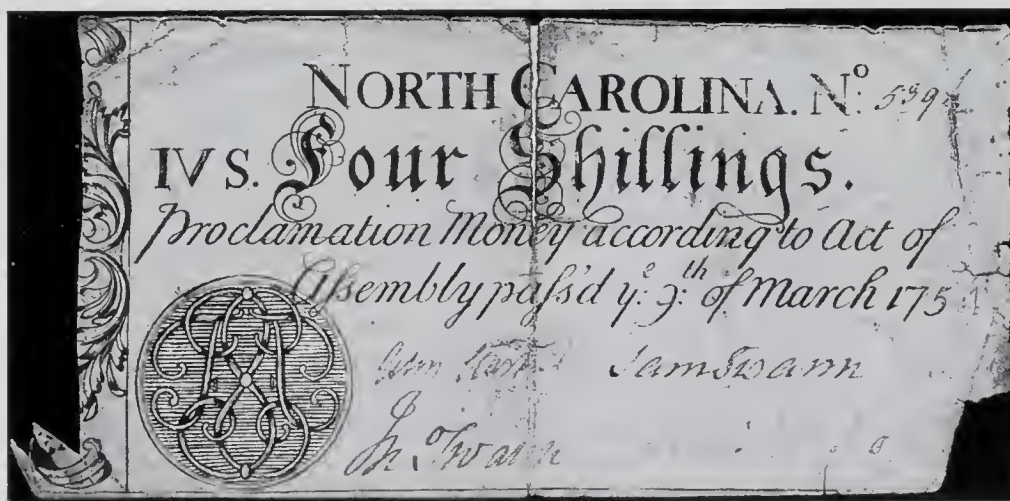 NORTH CAROLINA. No: 539
IVS. Four Shillings.
Proclamation Money according to Act of
Aſsembly paſs'd ye. 9th: of March 175
Sam Swann
Jn Swann